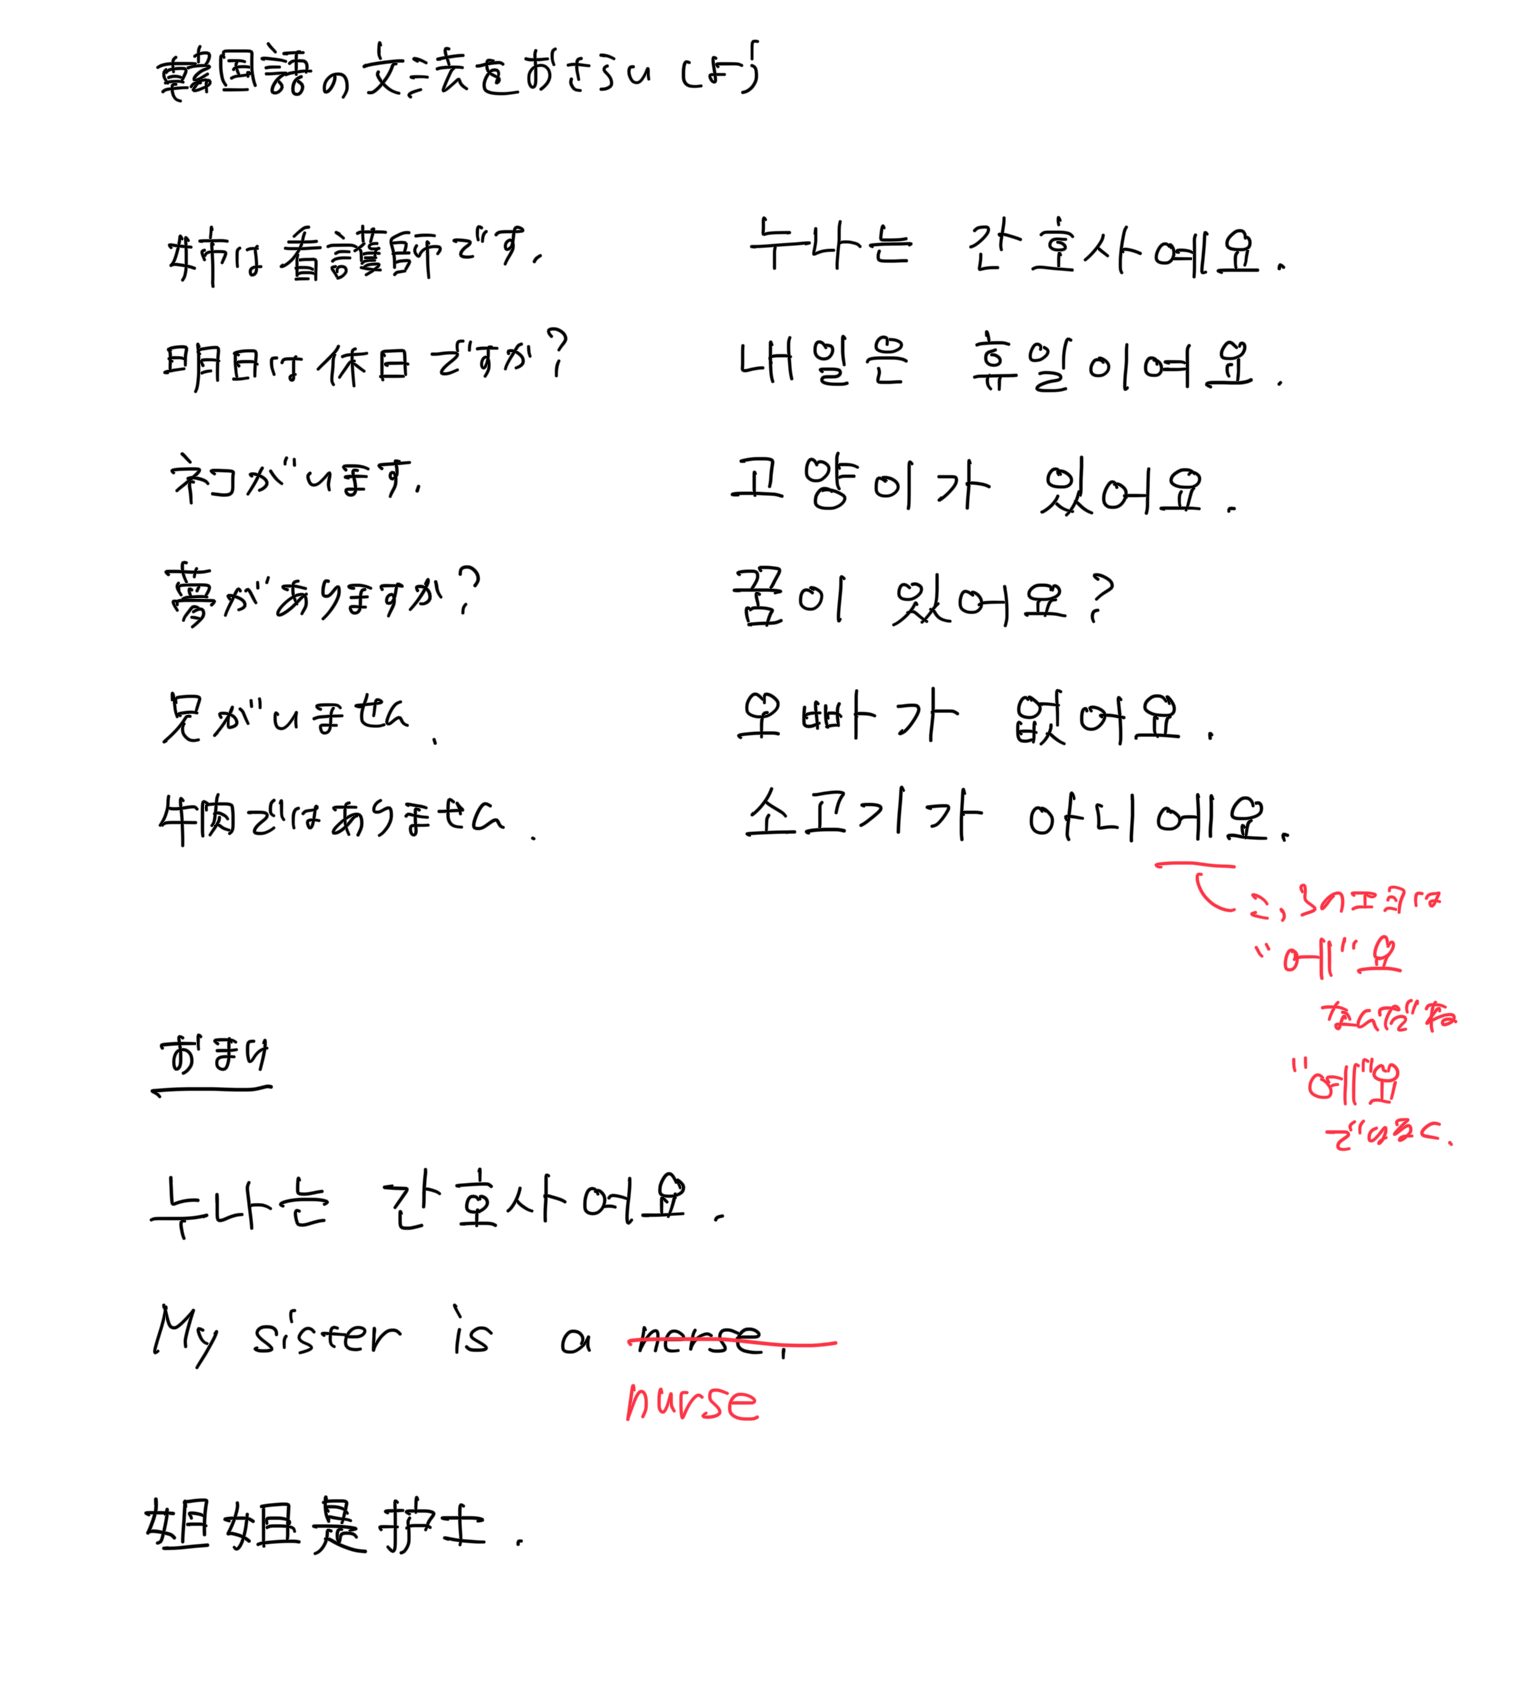 韓国語の文法をおさらいしよう
姉は看護師です. 누나는 간호사예요.
明日は休日ですか? 내일은 휴일이여요.
ネコがいます. 고양이가 있어요.
夢がありますか? 꿈이 있어요?
兄がいません. 오빠가 없어요.
牛肉ではありません. 소고기가 아니에요.
こっちのエヨは
"에"요
なんだね
"예"요
ではなく.
おまけ
누나는 간호사여요.
My sister is a nerse.
nurse
姐姐是护士.